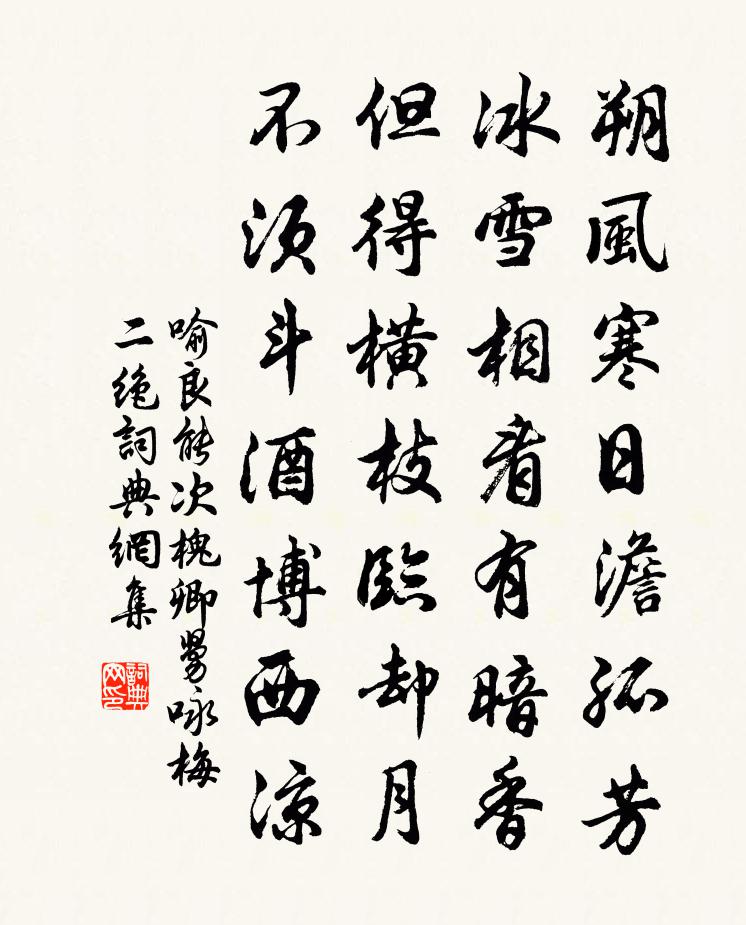 朔風寒日澹孤芳
冰雪相看有暗香
但得橫枝臨却月
不須斗酒博西涼
喻良能次槐卿舅咏梅
二绝詞典網集
詞典
网印